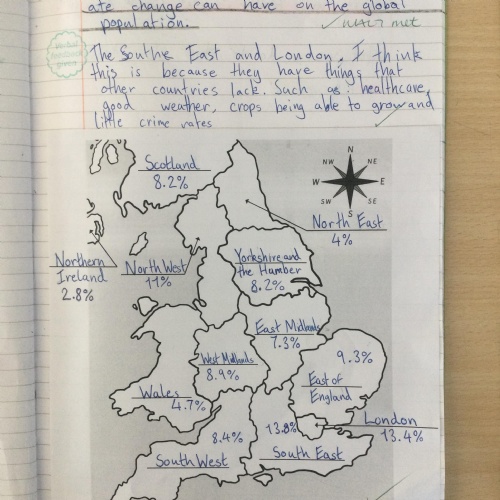 ate change can have on the global
population.
WALT met
The South East and London. I think
this is because they have things that
other countries lack. Such as: healthcare,
good weather, crops being able to grow and
little crime rates
Scotland
8.2%
N
NW NE
W E
SW SE
S
North East
4%
Northern
Ireland
2.8%
North West
11%
Yorkshire and
the Humber
8.2%
East Midlands
7.3%
West Midlands
8.9%
9.3%
East of
England
Wales
4.7%
London
13.4%
8.4%
South West
South East